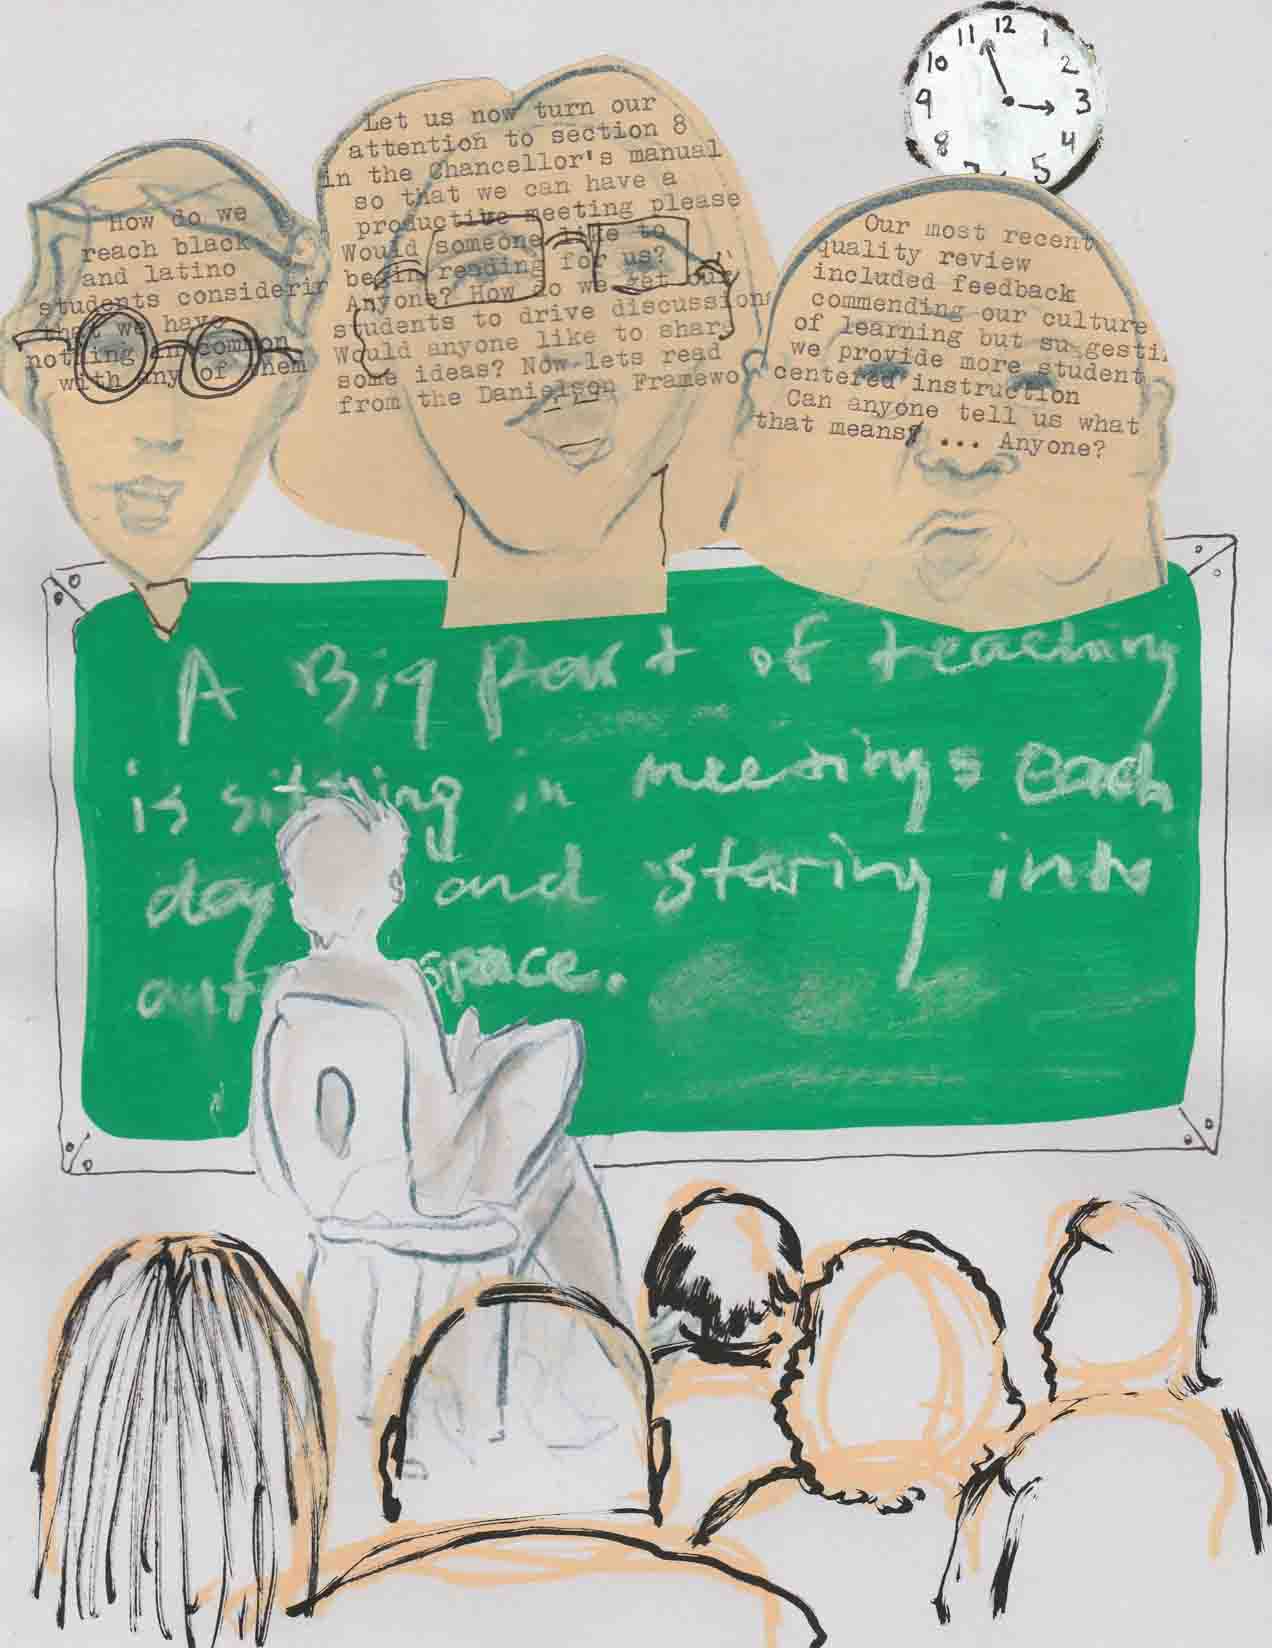 11 12 1
10 2
9 3
8 4
7 5
How do we
reach black
and latino
students considerin
that we have
nothing in common
with any of them
Let us now turn our
attention to section 8
in the Chancellor's manual
so that we can have a
productive meeting please
Would someone like to
begin reading for us?
Anyone? How do we get our
students to drive discussions
Would anyone like to share
some ideas? Now lets read
from the Danielson Framewo
Our most recent
quality review
included feedback
commending our culture
of learning but suggesti
we provide more student
centered instruction
Can anyone tell us what
that means? ... Anyone?
A Big Part of teaching
is sitting in meetings each
day and staring into
outer space.